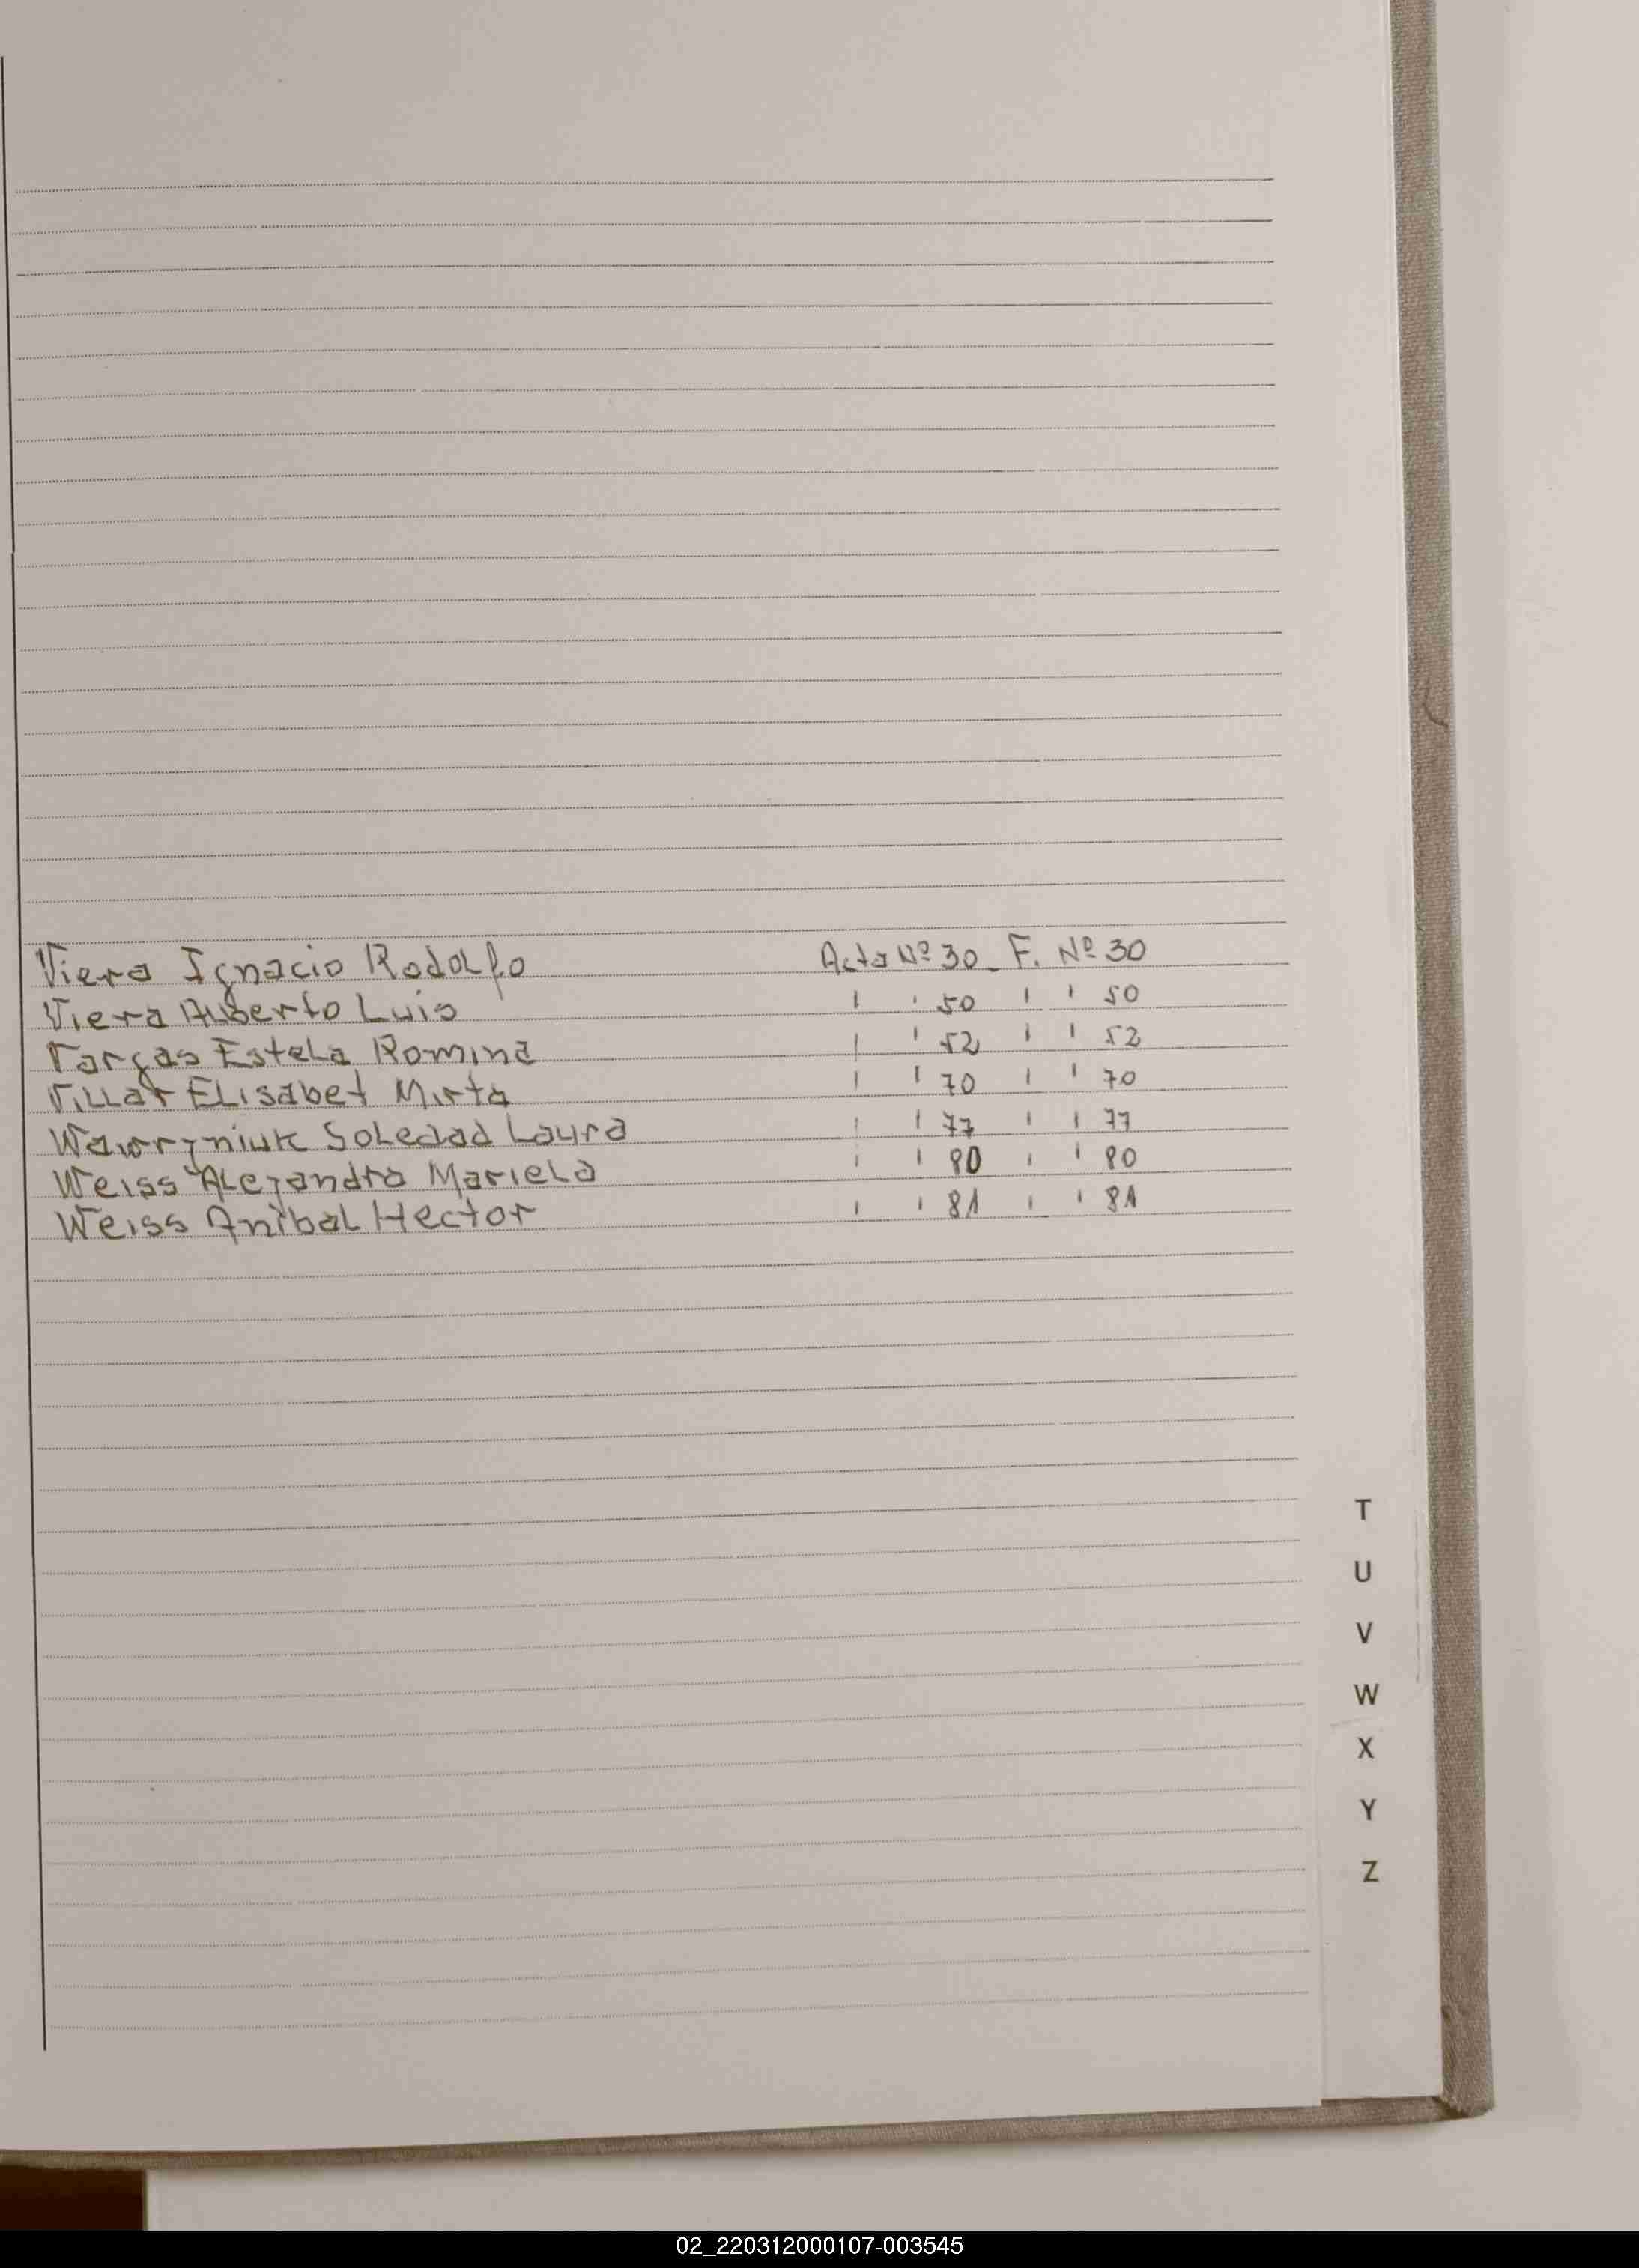 Viera Ignacio Rodolfo Acta Nº 30 - F. Nº 30
Viera Alberto Luis ' ' 50 ' ' 50
Vargas Estela Romina ' ' 52 ' ' 52
Villar Elisabet Mirta ' ' 70 ' ' 70
Wawryniuk Soledad Laura ' ' 77 ' ' 77
Weiss Alejandra Mariela ' ' 80 ' ' 80
Weiss Anibal Hector ' ' 81 ' ' 81
T
U
V
W
X
Y
Z
02_220312000107-003545